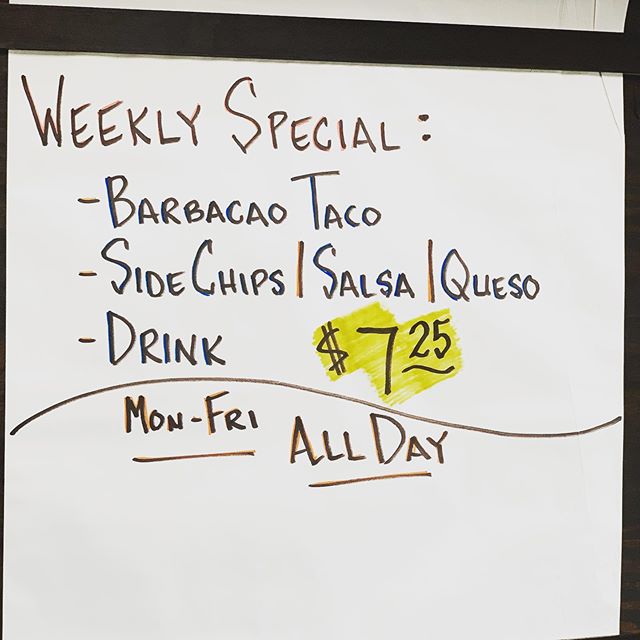 WEEKLY SPECIAL:
- BARBACAO TACO
- SIDE CHIPS | SALSA | QUESO
- DRINK $7.25
MON-FRI ALL DAY